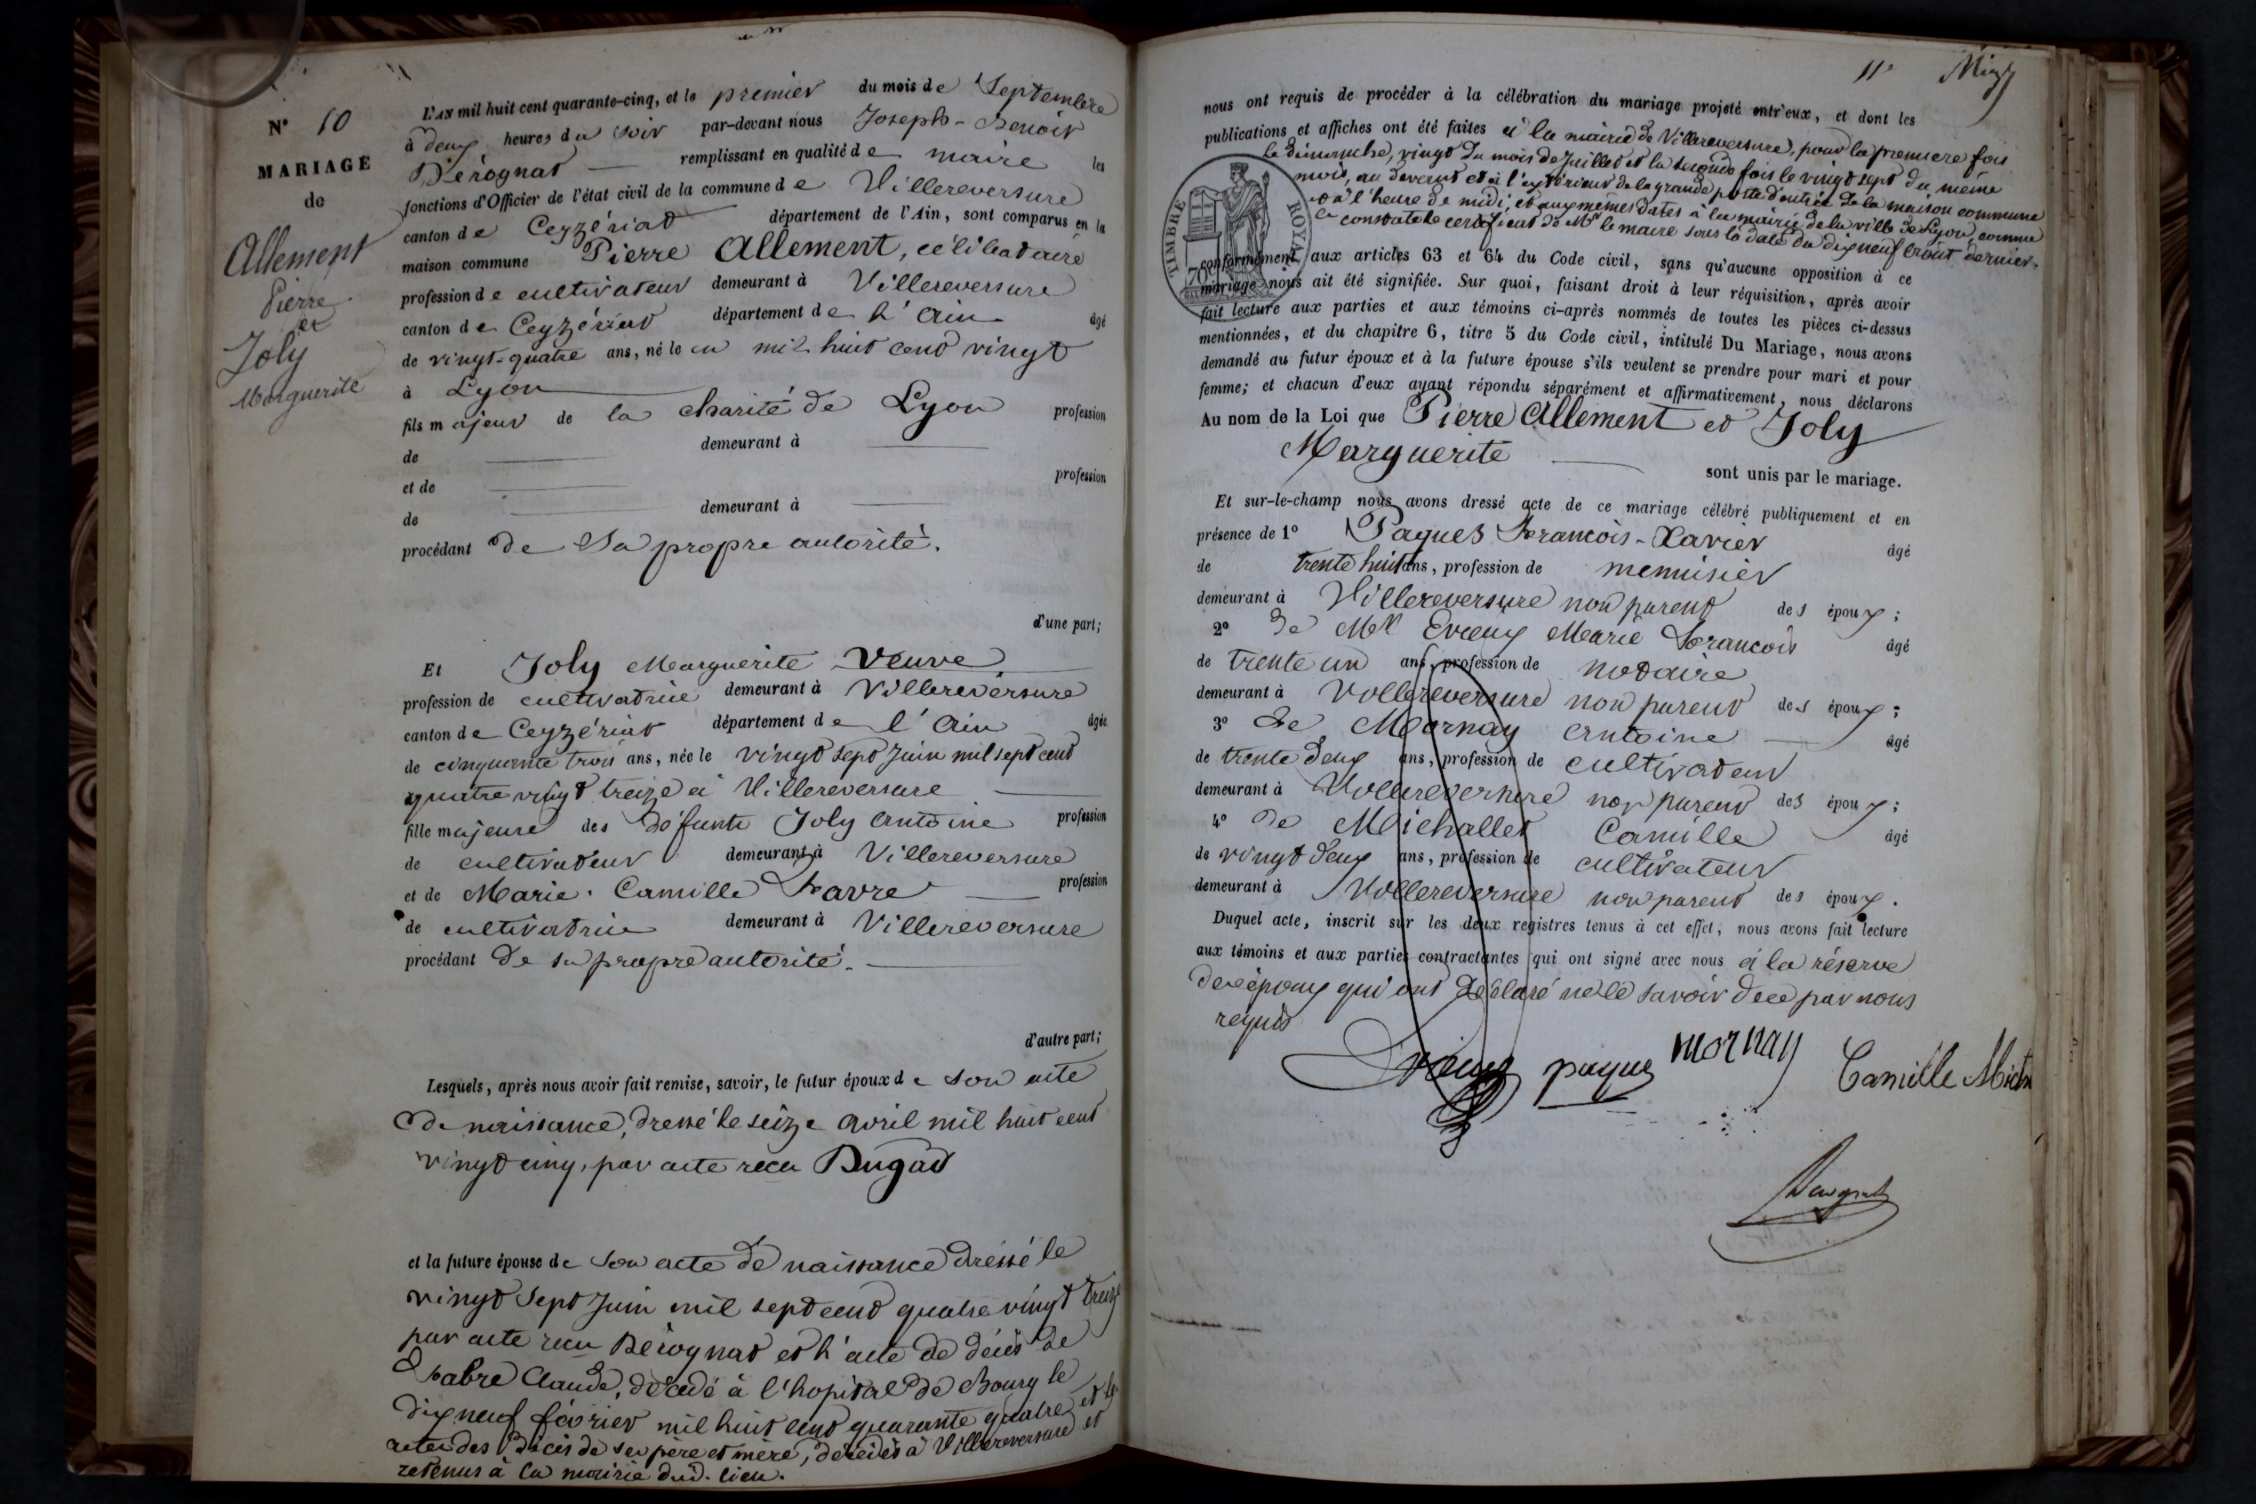 N° 10
MARIAGE
de
Allement
Pierre
et
Joly
Marguerite
L'AN mil huit cent quarante-cinq, et le premier du mois de Septembre
à deux heures du soir par-devant nous Joseph-Benoit
Dérognat remplissant en qualité de maire les
fonctions d'Officier de l'état civil de la commune de Villereversure
canton de Ceyzériat département de l'Ain, sont comparus en la
maison commune Pierre Allement, célibataire
profession de cultivateur demeurant à Villereversure
canton de Ceyzériat département de l'Ain âgé
de vingt-quatre ans, né le en mil huit cent vingt
à Lyon
fils majeur de la charité de Lyon profession
de demeurant à
et de profession
de demeurant à
procédant de sa propre autorité.
d'une part;
Et Joly Marguerite Veuve
profession de cultivatrice demeurant à Villereversure
canton de Ceyzériat département de l'Ain âgée
de cinquante trois ans, née le vingt sept Juin mil sept cent
quatre vingt treize à Villereversure
fille majeure des défunts Joly Antoine profession
de cultivateur demeurant à Villereversure
et de Marie Camille Favre profession
de cultivatrice demeurant à Villereversure
procédant de sa propre autorité.
d'autre part;
Lesquels, après nous avoir fait remise, savoir, le futur époux de son acte
de naissance, dressé le seize avril mil huit cent
vingt cinq, par acte recu Dugad
et la future épouse de son acte de naissance dressé le
vingt sept Juin mil sept cent quatre vingt treize
par acte recu Dérognat et l'acte de décès de
Fabre Claude, décédé à l'hopital de Bourg le
dix neuf février mil huit cent quarante quatre et les
actes des décès de ses père et mère, décédés à Villereversure et
retenus à la mairie dud. lieu.
11
nous ont requis de procéder à la célébration du mariage projeté entr'eux, et dont les
publications et affiches ont été faites à la mairie de Villereversure, pour la premiere fois
le dimanche, vingt du mois de Juillet et la seconde fois le vingt sept du même
mois, au devant et à l'extérieur de la grande porte d'entrée de la maison commune
et à l'heure de midi, et aux mêmes dates à la mairie de la ville de Lyon, comme
le constate le certificat de Mr le maire sous la date du dix neuf Août dernier.
TIMBRE ROYAL
70
conformément aux articles 63 et 64 du Code civil, sans qu'aucune opposition à ce
mariage nous ait été signifiée. Sur quoi, faisant droit à leur réquisition, après avoir
fait lecture aux parties et aux témoins ci-après nommés de toutes les pièces ci-dessus
mentionnées, et du chapitre 6, titre 5 du Code civil, intitulé Du Mariage, nous avons
demandé au futur époux et à la future épouse s'ils veulent se prendre pour mari et pour
femme; et chacun d'eux ayant répondu séparément et affirmativement, nous déclarons
Au nom de la Loi que Pierre Allement et Joly
Marguerite
sont unis par le mariage.
Et sur-le-champ nous avons dressé acte de ce mariage célébré publiquement et en
présence de 1° Paques Francois-Xavier âgé
de trente huit ans, profession de menuisier
demeurant à Villereversure non parent des époux;
2° de Mr Evieux Marie Francois âgé
de trente un ans, profession de notaire
demeurant à Villereversure non parent des époux;
3° de Mornay Antoine âgé
de trente deux ans, profession de cultivateur
demeurant à Villereversure non parent des époux;
4° de Michallet Camille âgé
de vingt deux ans, profession de cultivateur
demeurant à Villereversure non parent des époux.
Duquel acte, inscrit sur les deux registres tenus à cet effet, nous avons fait lecture
aux témoins et aux parties contractantes qui ont signé avec nous à la réserve
des époux qui ont déclaré ne le savoir de ce par nous
requis
Evieux paques mornay Camille Mich